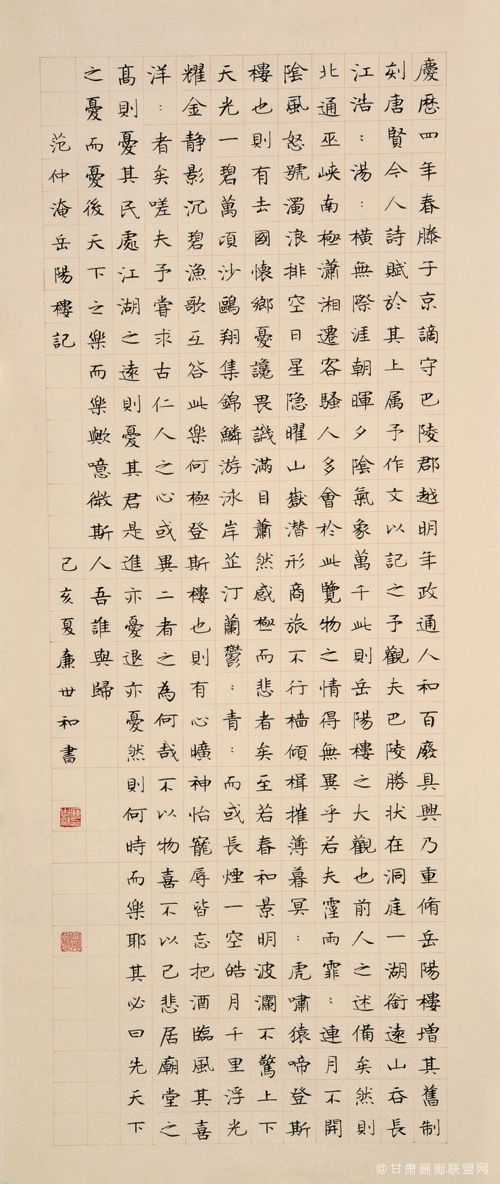 慶歷四年春滕子京謫守巴陵郡越明年政通人和百廢具興乃重脩岳陽樓增其舊制
刻唐賢今人詩賦於其上属予作文以記之予觀夫巴陵勝状在洞庭一湖銜遠山吞長
江浩：湯：橫無際涯朝暉夕陰氣象萬千此則岳陽樓之大觀也前人之述備矣然則
北通巫峽南極瀟湘遷客騷人多會於此覽物之情得無異乎若夫霪雨霏：連月不開
陰風怒號濁浪排空日星隐曜山嶽潜形商旅不行檣傾楫摧薄暮冥：虎嘯猿啼登斯
樓也則有去國懷鄉憂讒畏譏滿目蕭然感極而悲者矣至若春和景明波瀾不驚上下
天光一碧萬頃沙鷗翔集錦鱗游泳岸芷汀蘭鬱：青：而或長煙一空皓月千里浮光
耀金静影沉碧漁歌互答此樂何極登斯樓也則有心曠神怡寵辱皆忘把酒臨風其喜
洋：者矣嗟夫予嘗求古仁人之心或異二者之為何哉不以物喜不以己悲居廟堂之
髙則憂其民處江湖之遠則憂其君是進亦憂退亦憂然則何時而樂耶其必曰先天下
之憂而憂後天下之樂而樂歟噫微斯人吾誰與歸
范仲淹岳陽樓記 己亥夏廉世和書
@甘肃画廊联盟网